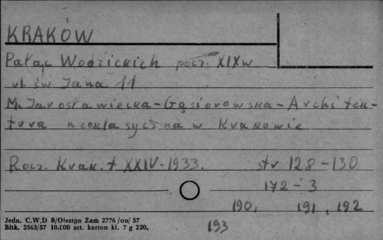 KRAKÓW
Pałac Wodzickich pocz. XIX w
ul. św Jana 11
M. Jarosławiecka-Gąsiorowska - Architek-
tura neoklasyczna w Krakowie
Rocz. Krak. t XXIV-1933. str 128-130
172-3
190, 191, 192
193
Jedn. C.W.D B/Olsztyn Zam 2776/on/57
Błtk. 2563/57 10.000 szt. karton kl. 7 g 220.